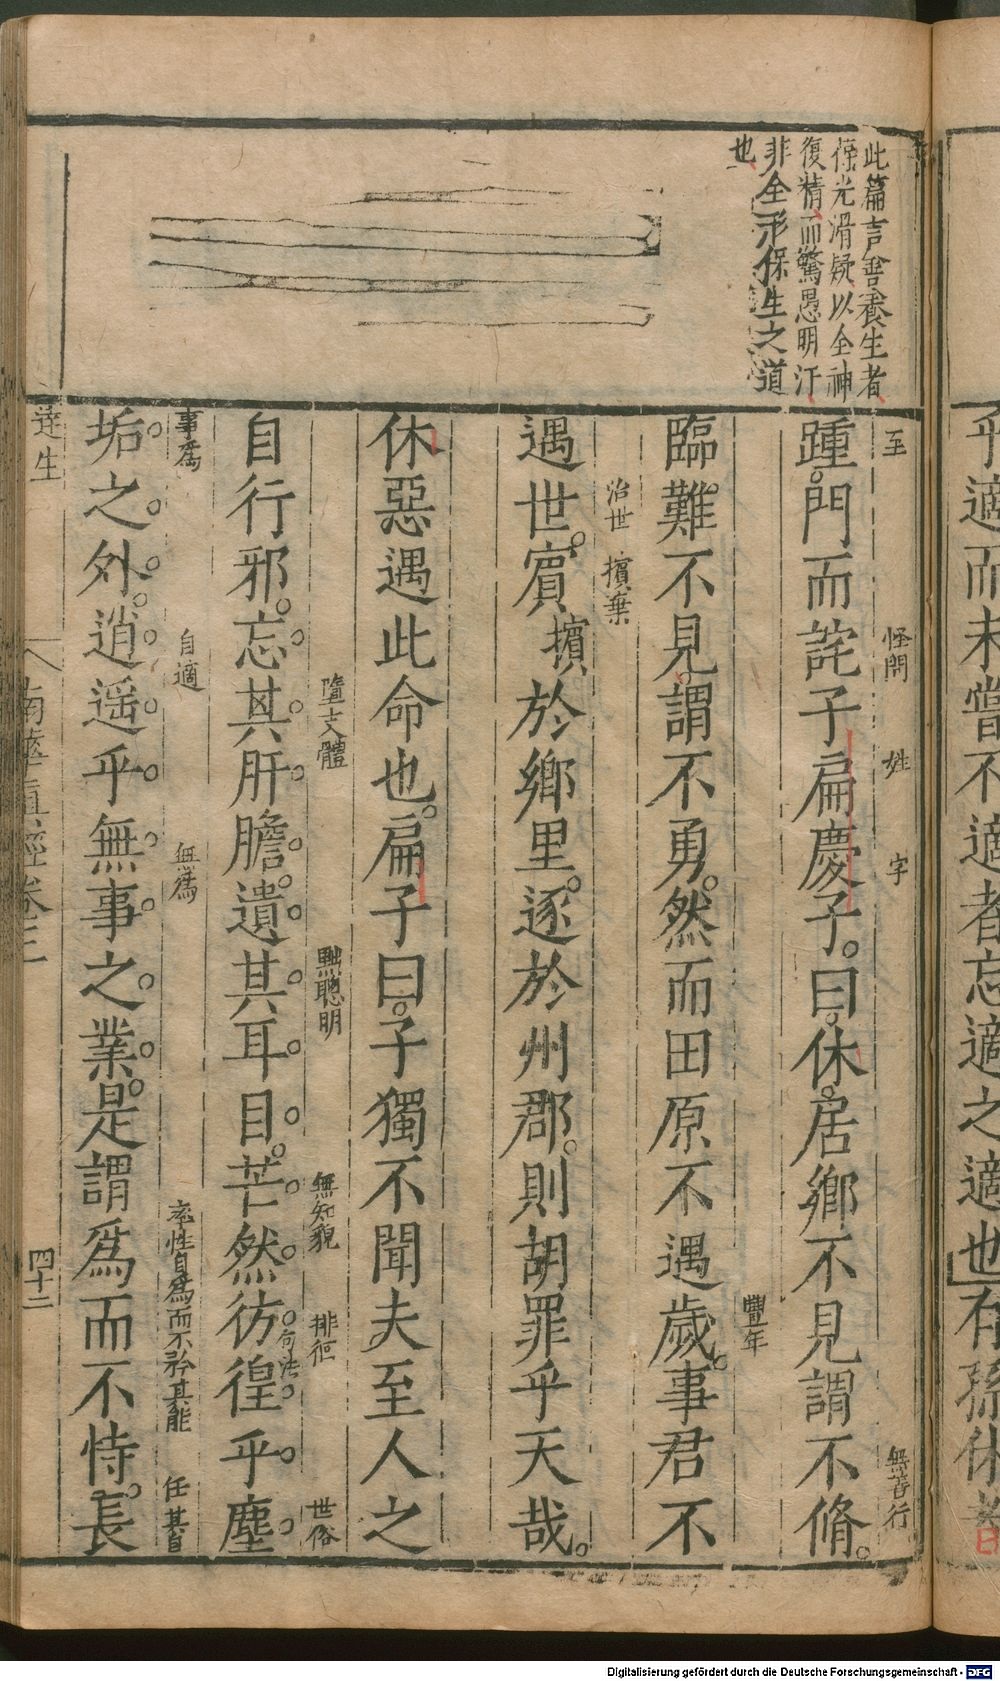 乎適而未嘗不適者忘適之適也有孫休者
此篇言善養生者
葆光滑疑以全神
復精而驚愚明汙
非全形保生之道
也
至 怪問 姓 字 無善行
踵門而詫子扁慶子曰休居鄉不見謂不脩
豐年
臨難不見謂不勇然而田原不遇歲事君不
治世 擯棄
遇世賓擯於鄉里逐於州郡則胡罪乎天哉
休惡遇此命也扁子曰子獨不聞夫至人之
墮支體 黜聰明 無知貌 排徊 世俗
自行邪忘其肝膽遺其耳目芒然彷徨乎塵
句法
事為 自適 無爲 率性自爲而不矜其能 任其自
垢之外逍遥乎無事之業是謂爲而不恃長
達生 南華真經卷三 四十二
Digitalisierung gefördert durch die Deutsche Forschungsgemeinschaft - DFG